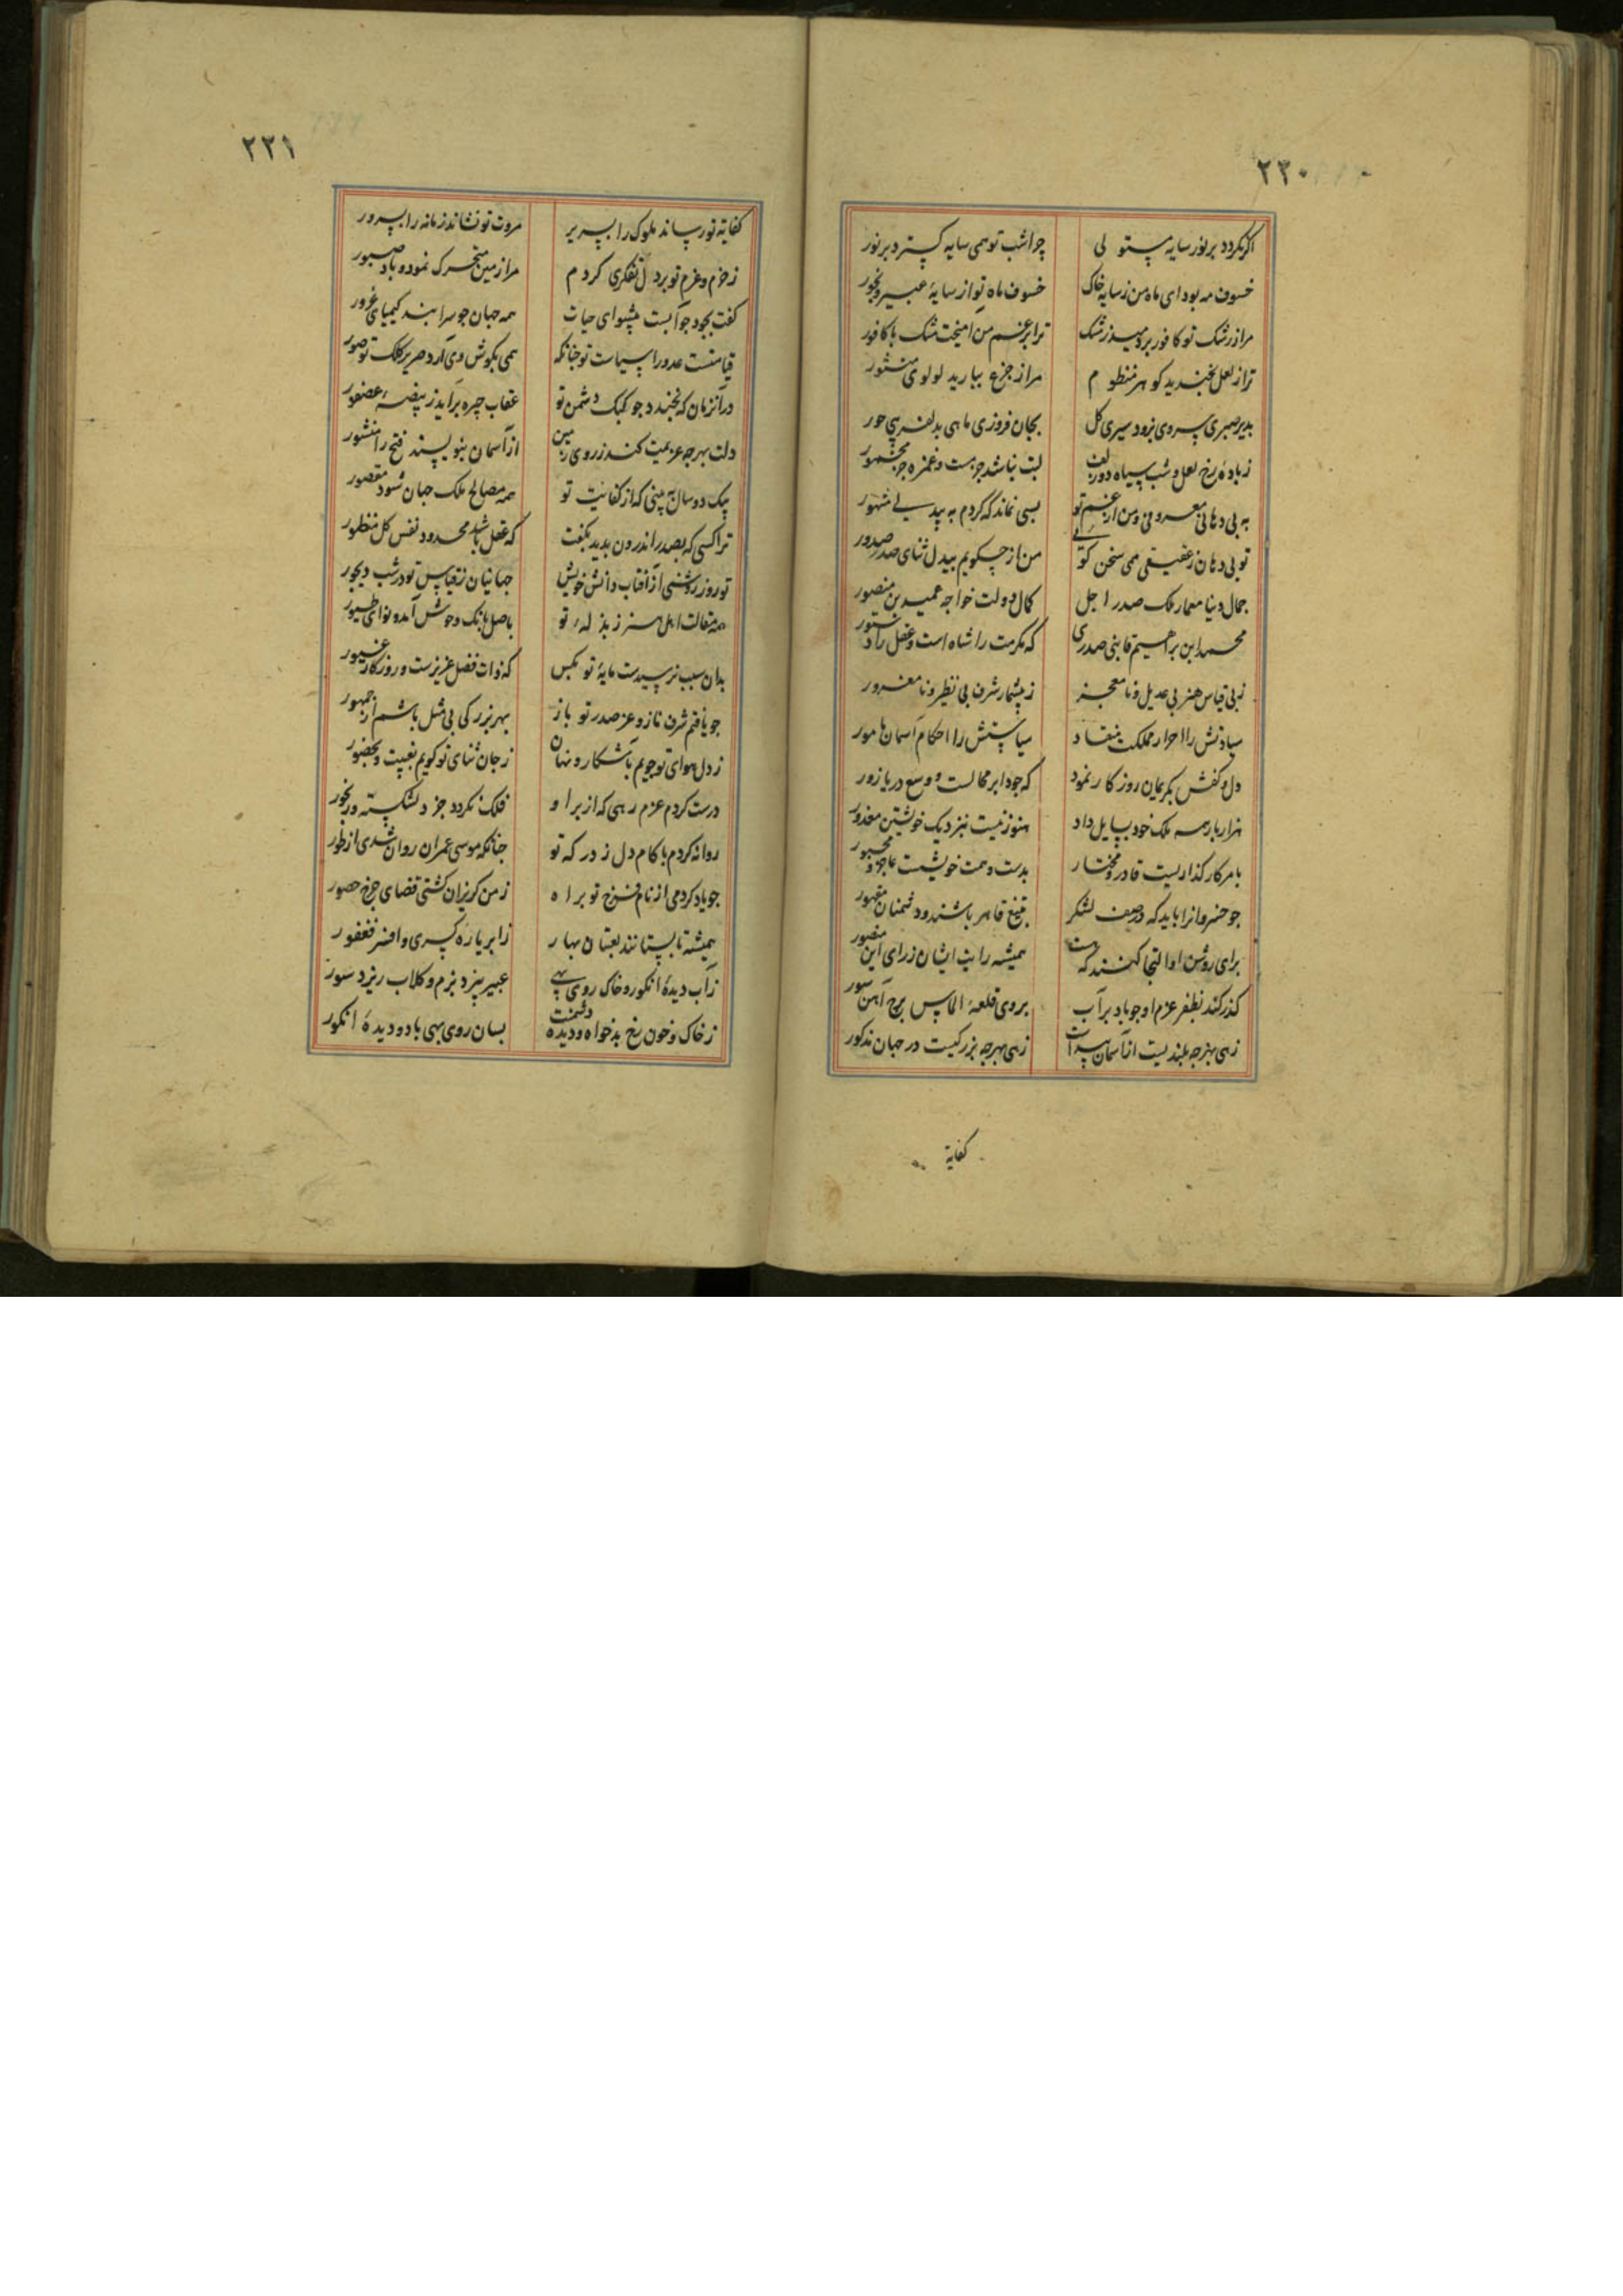 ۲۲۰
اگر نکردد بر نور سایه مستولی چرا شب تو همی سایه کسترد بر نور
خسوف مه بود ای ماه من ز سایه خاک خسوف ماه تو از سایهٔ عبیر و بخور
مرا ز رشک تو کافور بردمید ز مشک ترا بر غم من آمیخت مشک با کافور
ترا ز لعل بخندید کوهر منظوم مرا ز جزع ببارید لولوی منثور
بدیر صبری سروی بزود سیری کل بجان فروزی ماهی بدلفریبی حور
ز باده رخ لعل و شب سیاه دو زلف لبت نباشد جز مست و غمزه جز مخمور
به بی دهانی معروفی و من از غم تو بسی نماند که کردم به بیدلی مشهور
تو بی دهان ز عقیقی می سخن کوئی من از چکویم بیدل ثنای صدر صدور
جمال دنیا معمار ملک صدر اجل کمال دولت خواجه عمید بن منصور
محمد ابن براهیم قابنی صدری که مکرمت را شاه است و عقل را دستور
ز بی قیاس هنر بی عدیل و نا معجز ز بیشمار شرف بی نظیر و نا مغرور
سیادتش را احرار مملکت منقاد سیاستش را احکام آسمان مامور
دل و کفش بکریمان روزکار نمود که جود ابر محالست و وسع دریا زور
هزار بار همه ملک خود بسایل داد هنوز نیست بنزدیک خویشتن معذور
بامر کار کذاریست قادر و مختار بدست و همت خویشست عاجز و مجبور
جو خسروانرا باید که در صف لشکر بتیغ قاهر باشند و دشمنان مقهور
برای روشن او التجا کنند که هست همیشه رایت ایشان ز رای این منصور
کذر کند بظفر عزم او جو باد بر آب بروی قلعهٔ الماس برج آهن سور
زهی بهرجه بلندیست از آسمان سرات زهی بهرجه بزرکیست در جهان مذکور
کفایة
۲۲۱
کفایة تو رساند ملوک را بسریر مروت تو نشاند زمانه را بسرور
ز حزم و عزم تو بر دل تفکری کردم مرا زمین متحرک نمود و باد صبور
کفت بجود جو آبست پیشوای حیات همه جهان جو سرابند کیمیای غرور
قیامتست عدو را سیاست تو جنانکه همی بکوش وی آرد صریر کلک تو صور
در آنزمان که بخندد جو کبک دشمن تو عقاب چیره برآید ز بیضهٔ عصفور
دلت بهرجه عزیمت کند ز روی زمین از آسمان بنویسند فتح را منشور
بیک دو سال به بینی که از کفایت تو همه مصالح ملک جهان شود مقصور
ترا کسی که بصدر اندرون بدید بکفت که عقل باشد محدود نفس کل منظور
تو روز روشنی از آفتاب دانش خویش جهانیان ز قیاس تو در شب دیجور
همه مقالت اهل هنر ز بذلهٔ تو باصل بانک وحوش آمد و نوای طیور
بدان سبب نرسیدست مایهٔ تو بکس که ذات فضل عزیزست و روزکار غیور
جو یافتم شرف تازه و عز صدر تو باز بهر بزرکی بی مثل باشم از جمهور
ز دل هوای تو جویم باشکار و نهان ز جان ثنای تو کویم بغیبت و بحضور
درست کردم عزم رهی که از بر او فلک نکردد جز دلشکسته و رنجور
روانه کردم با کام دل ز درکه تو جنانکه موسی عمران روان شدی از طور
جو یاد کردمی از نام فرخ تو براه ز من کریزان کشتی قضای جرخ حصور
همیشه تا بستانند لعبتان بهار ز ابر یاره کسری و افسر فغفور
ز آب دیدهٔ انکور و خاک روی بهی عبیر بیزد بزم و کلاب ریزد سور
ز خاک و خون رخ بدخواه و دیدهٔ دشمنت بسان روی بهی باد و دیدهٔ انکور